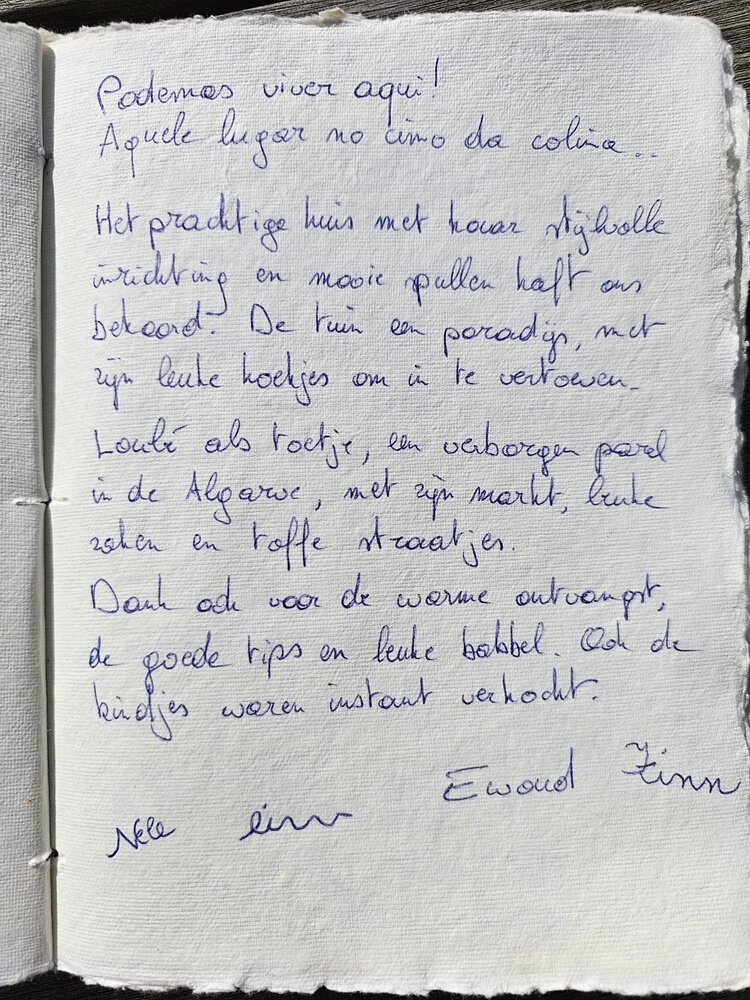 Podemos viver aqui!
Aquele lugar no cimo da colina...
Het prachtige huis met haar stijlvolle
inrichting en mooie spullen heeft ons
bekoord. De tuin een paradijs, met
zijn leuke hoekjes om in te vertoeven.
Loulé als toetje, een verborgen parel
in de Algarve, met zijn markt, leuke
zaken en toffe straatjes.
Dank ook voor de warme ontvangst,
de goede tips en leuke babbel. Ook de
kindjes waren instant verkocht.
Ewoud Finn
Nele